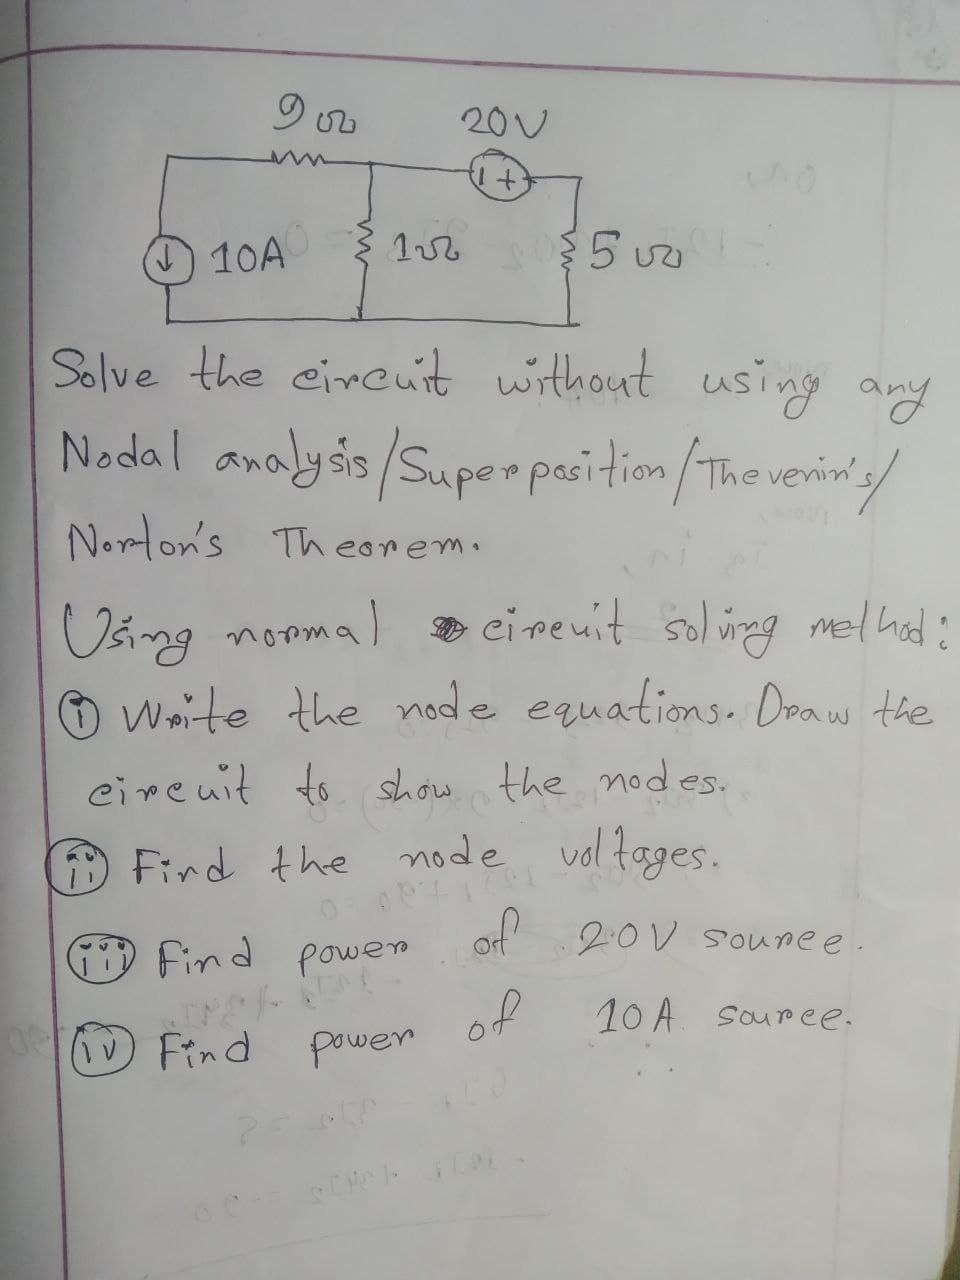 9Ω 20V
10A 1Ω 5Ω
Solve the circuit without using any
Nodal analysis/Superposition/Thevenin's/
Norton's Theorem.
Using normal circuit solving method:
(i) Write the node equations. Draw the
circuit to show the nodes.
(ii) Find the node voltages.
(iii) Find power of 20V source.
(iv) Find power of 10A source.